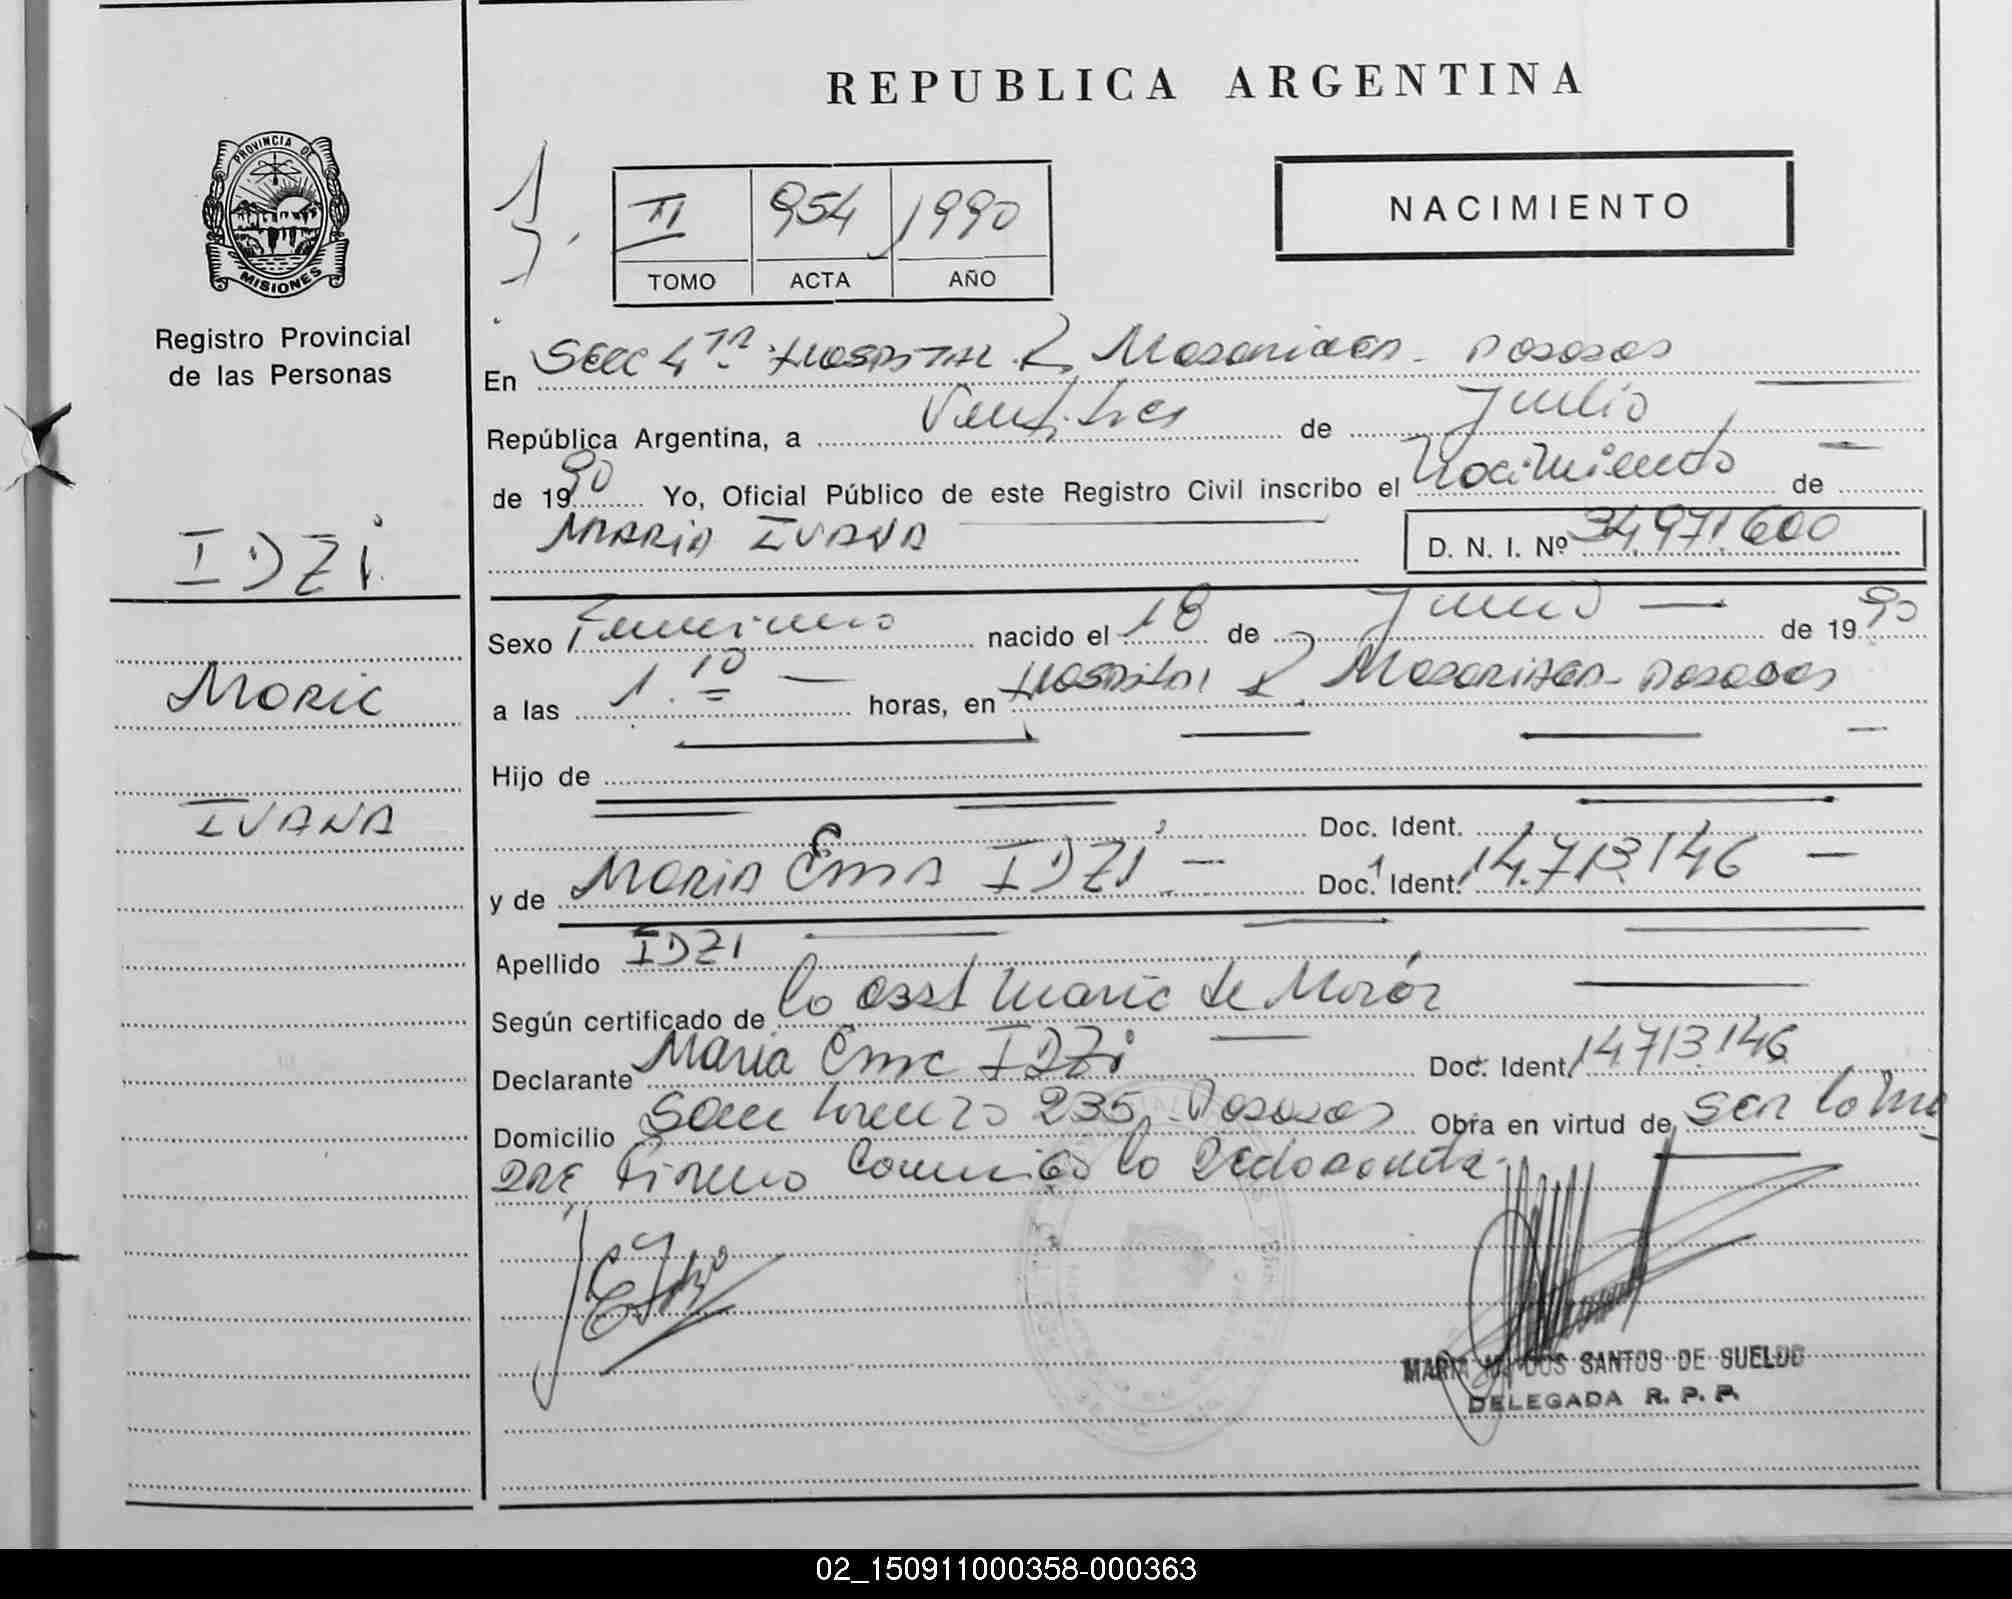 REPUBLICA ARGENTINA
PROVINCIA DE
MISIONES
Registro Provincial
de las Personas
II 954 1990
TOMO ACTA AÑO
NACIMIENTO
En Secc 4ta Hospital R. Madariaga - Posadas
República Argentina, a Veintitres de Julio
de 1990 Yo, Oficial Público de este Registro Civil inscribo el Nacimiento de
MARIA IVANA
D. N. I. Nº 34.971.600
IDZI
MARIA
IVANA
Sexo Femenino nacido el 18 de Junio de 1990
a las 1.10 horas, en Hospital R. Madariaga - Posadas
Hijo de
Doc. Ident.
y de Maria Ema IDZI Doc. Ident. 14.713.146
Apellido IDZI
Según certificado de la obst Maria de
Declarante Maria Ema IDZI Doc. Ident. 14713.146
Domicilio San Lorenzo 235, Posadas Obra en virtud de ser la ma
dre Firma conmigo la Declarante.
MARIA DOS SANTOS DE SUELDO
DELEGADA R. P. P.
02_150911000358-000363